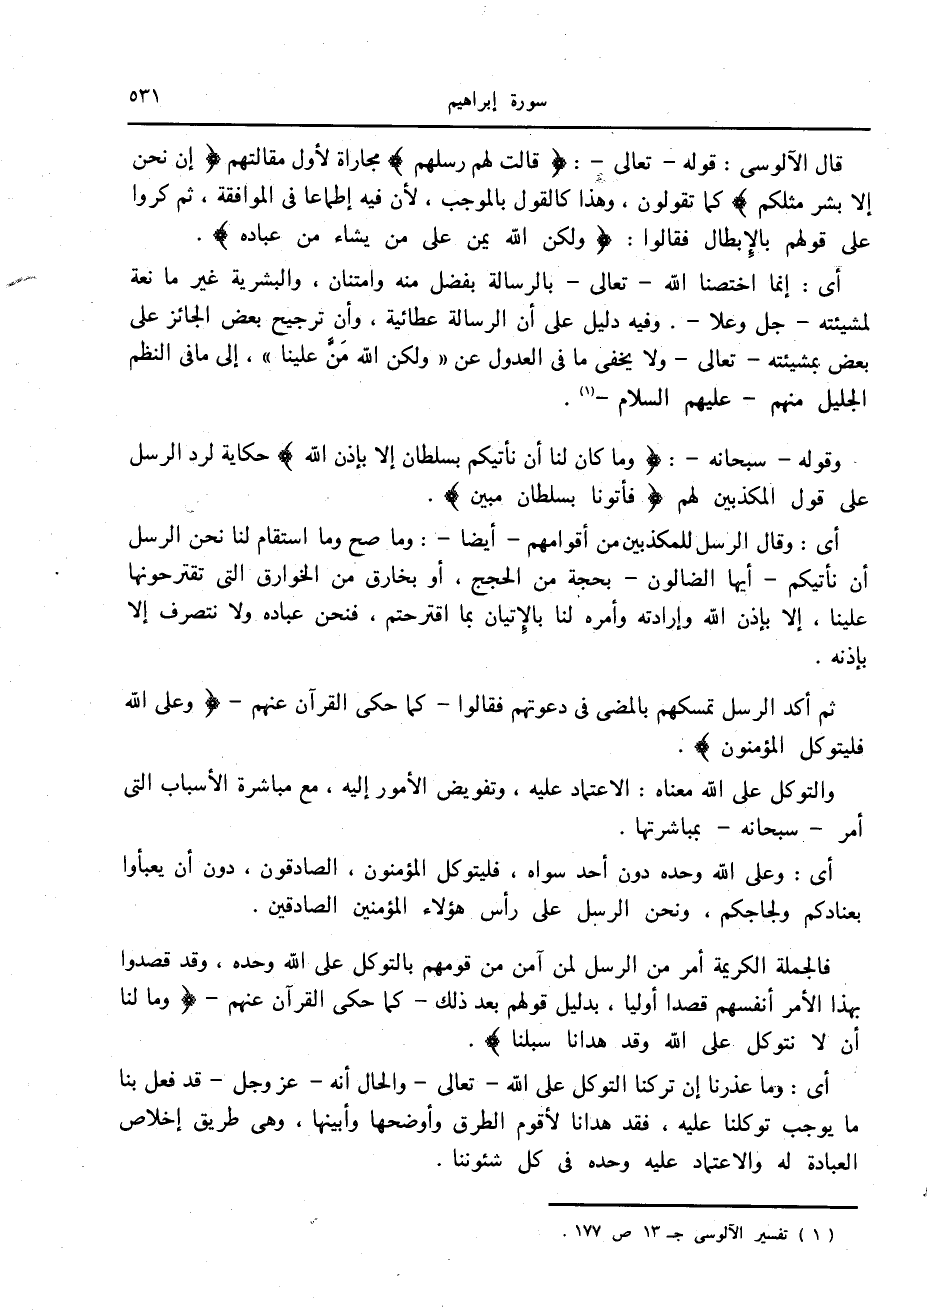 سورة إبراهيم ٥٣١
قال الآلوسى : قوله – تعالى – : ﴿ قالت لهم رسلهم ﴾ مجاراة لأول مقالتهم ﴿ إن نحن
إلا بشر مثلكم ﴾ كما تقولون ، وهذا كالقول بالموجب ، لأن فيه إطماعا فى الموافقة ، ثم كروا
على قولهم بالإبطال فقالوا : ﴿ ولكن الله يمن على من يشاء من عباده ﴾ .
أى : إنما اختصنا الله – تعالى – بالرسالة بفضل منه وامتنان ، والبشرية غير ما نعة
لمشيئته – جل وعلا – . وفيه دليل على أن الرسالة عطائية ، وأن ترجيح بعض الجائز على
بعض بمشيئته – تعالى – ولا يخفى ما فى العدول عن « ولكن الله مَنَّ علينا » ، إلى مافى النظم
الجليل منهم – عليهم السلام –(١) .
وقوله – سبحانه – : ﴿ وما كان لنا أن نأتيكم بسلطان إلا بإذن الله ﴾ حكاية لرد الرسل
على قول المكذبين لهم ﴿ فأتونا بسلطان مبين ﴾ .
أى : وقال الرسل للمكذبين من أقوامهم – أيضا – : وما صح وما استقام لنا نحن الرسل
أن نأتيكم – أيها الضالون – بحجة من الحجج ، أو بخارق من الخوارق التى تقترحونها
علينا ، إلا بإذن الله وإرادته وأمره لنا بالإتيان بما اقترحتم ، فنحن عباده ولا نتصرف إلا
بإذنه .
ثم أكد الرسل تمسكهم بالمضى فى دعوتهم فقالوا – كما حكى القرآن عنهم – ﴿ وعلى الله
فليتوكل المؤمنون ﴾ .
والتوكل على الله معناه : الاعتماد عليه ، وتفويض الأمور إليه ، مع مباشرة الأسباب التى
أمر – سبحانه – بمباشرتها .
أى : وعلى الله وحده دون أحد سواه ، فليتوكل المؤمنون ، الصادقون ، دون أن يعبأوا
بعنادكم ولجاجكم ، ونحن الرسل على رأس هؤلاء المؤمنين الصادقين .
فالجملة الكريمة أمر من الرسل لمن آمن من قومهم بالتوكل على الله وحده ، وقد قصدوا
بهذا الأمر أنفسهم قصدا أوليا ، بدليل قولهم بعد ذلك – كما حكى القرآن عنهم – ﴿ وما لنا
أن لا نتوكل على الله وقد هدانا سبلنا ﴾ .
أى : وما عذرنا إن تركنا التوكل على الله – تعالى – والحال أنه – عز وجل – قد فعل بنا
ما يوجب توكلنا عليه ، فقد هدانا لأقوم الطرق وأوضحها وأبينها ، وهى طريق إخلاص
العبادة له والاعتماد عليه وحده فى كل شئوننا .
( ١ ) تفسير الآلوسى جـ ١٣ ص ١٧٧ .